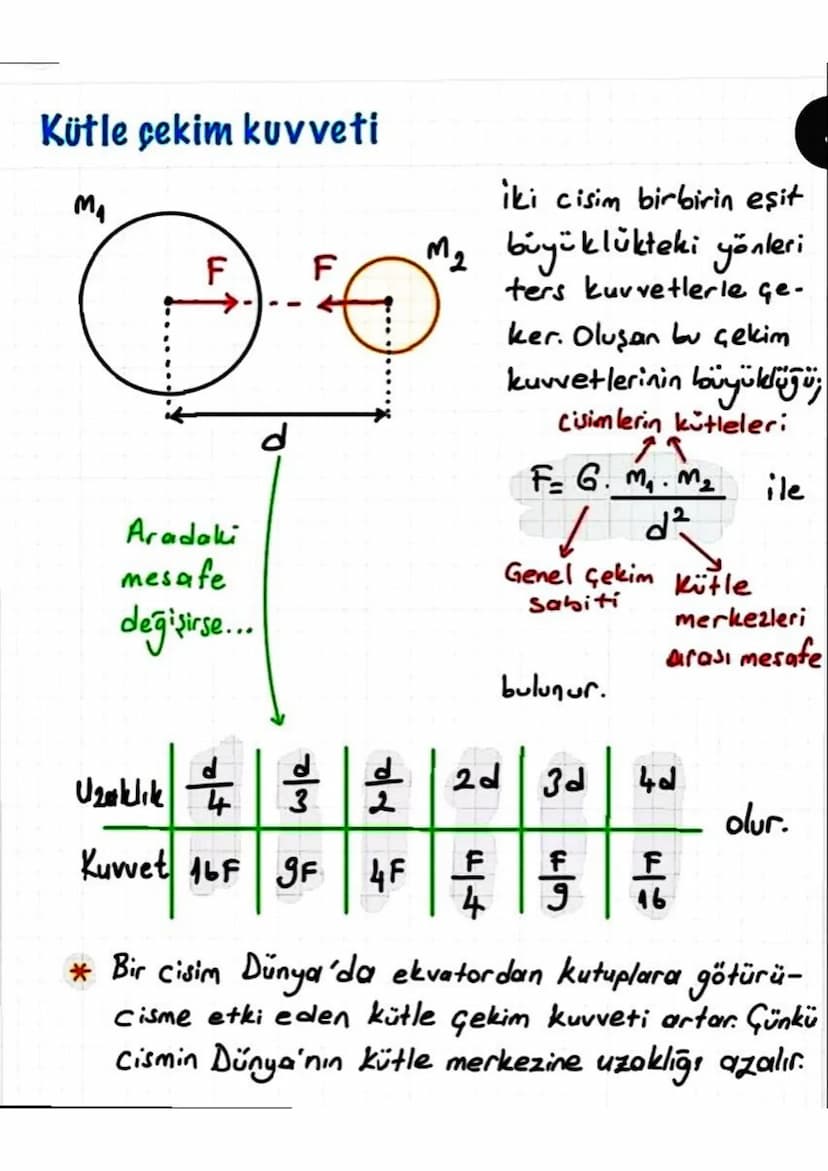 Kütle çekim kuvveti
M1
F
F
M2
d
İki cisim birbirin eşit
büyüklükteki yönleri
ters kuvvetlerle çe-
ker. Oluşan bu çekim
kuvvetlerinin büyüklüğü;
cisimlerin kütleleri
F= G. m1 . m2 / d² ile
Genel çekim
sabiti
kütle
merkezleri
arası mesafe
bulunur.
Aradaki
mesafe
değişirse...
Uzaklık d/4 d/3 d/2 2d 3d 4d
Kuvvet 16F 9F 4F F/4 F/9 F/16
olur.
* Bir cisim Dünya'da ekvatordan kutuplara götürü-
cisme etki eden kütle çekim kuvveti artar. Çünkü
cismin Dünya'nın kütle merkezine uzaklığı azalır.